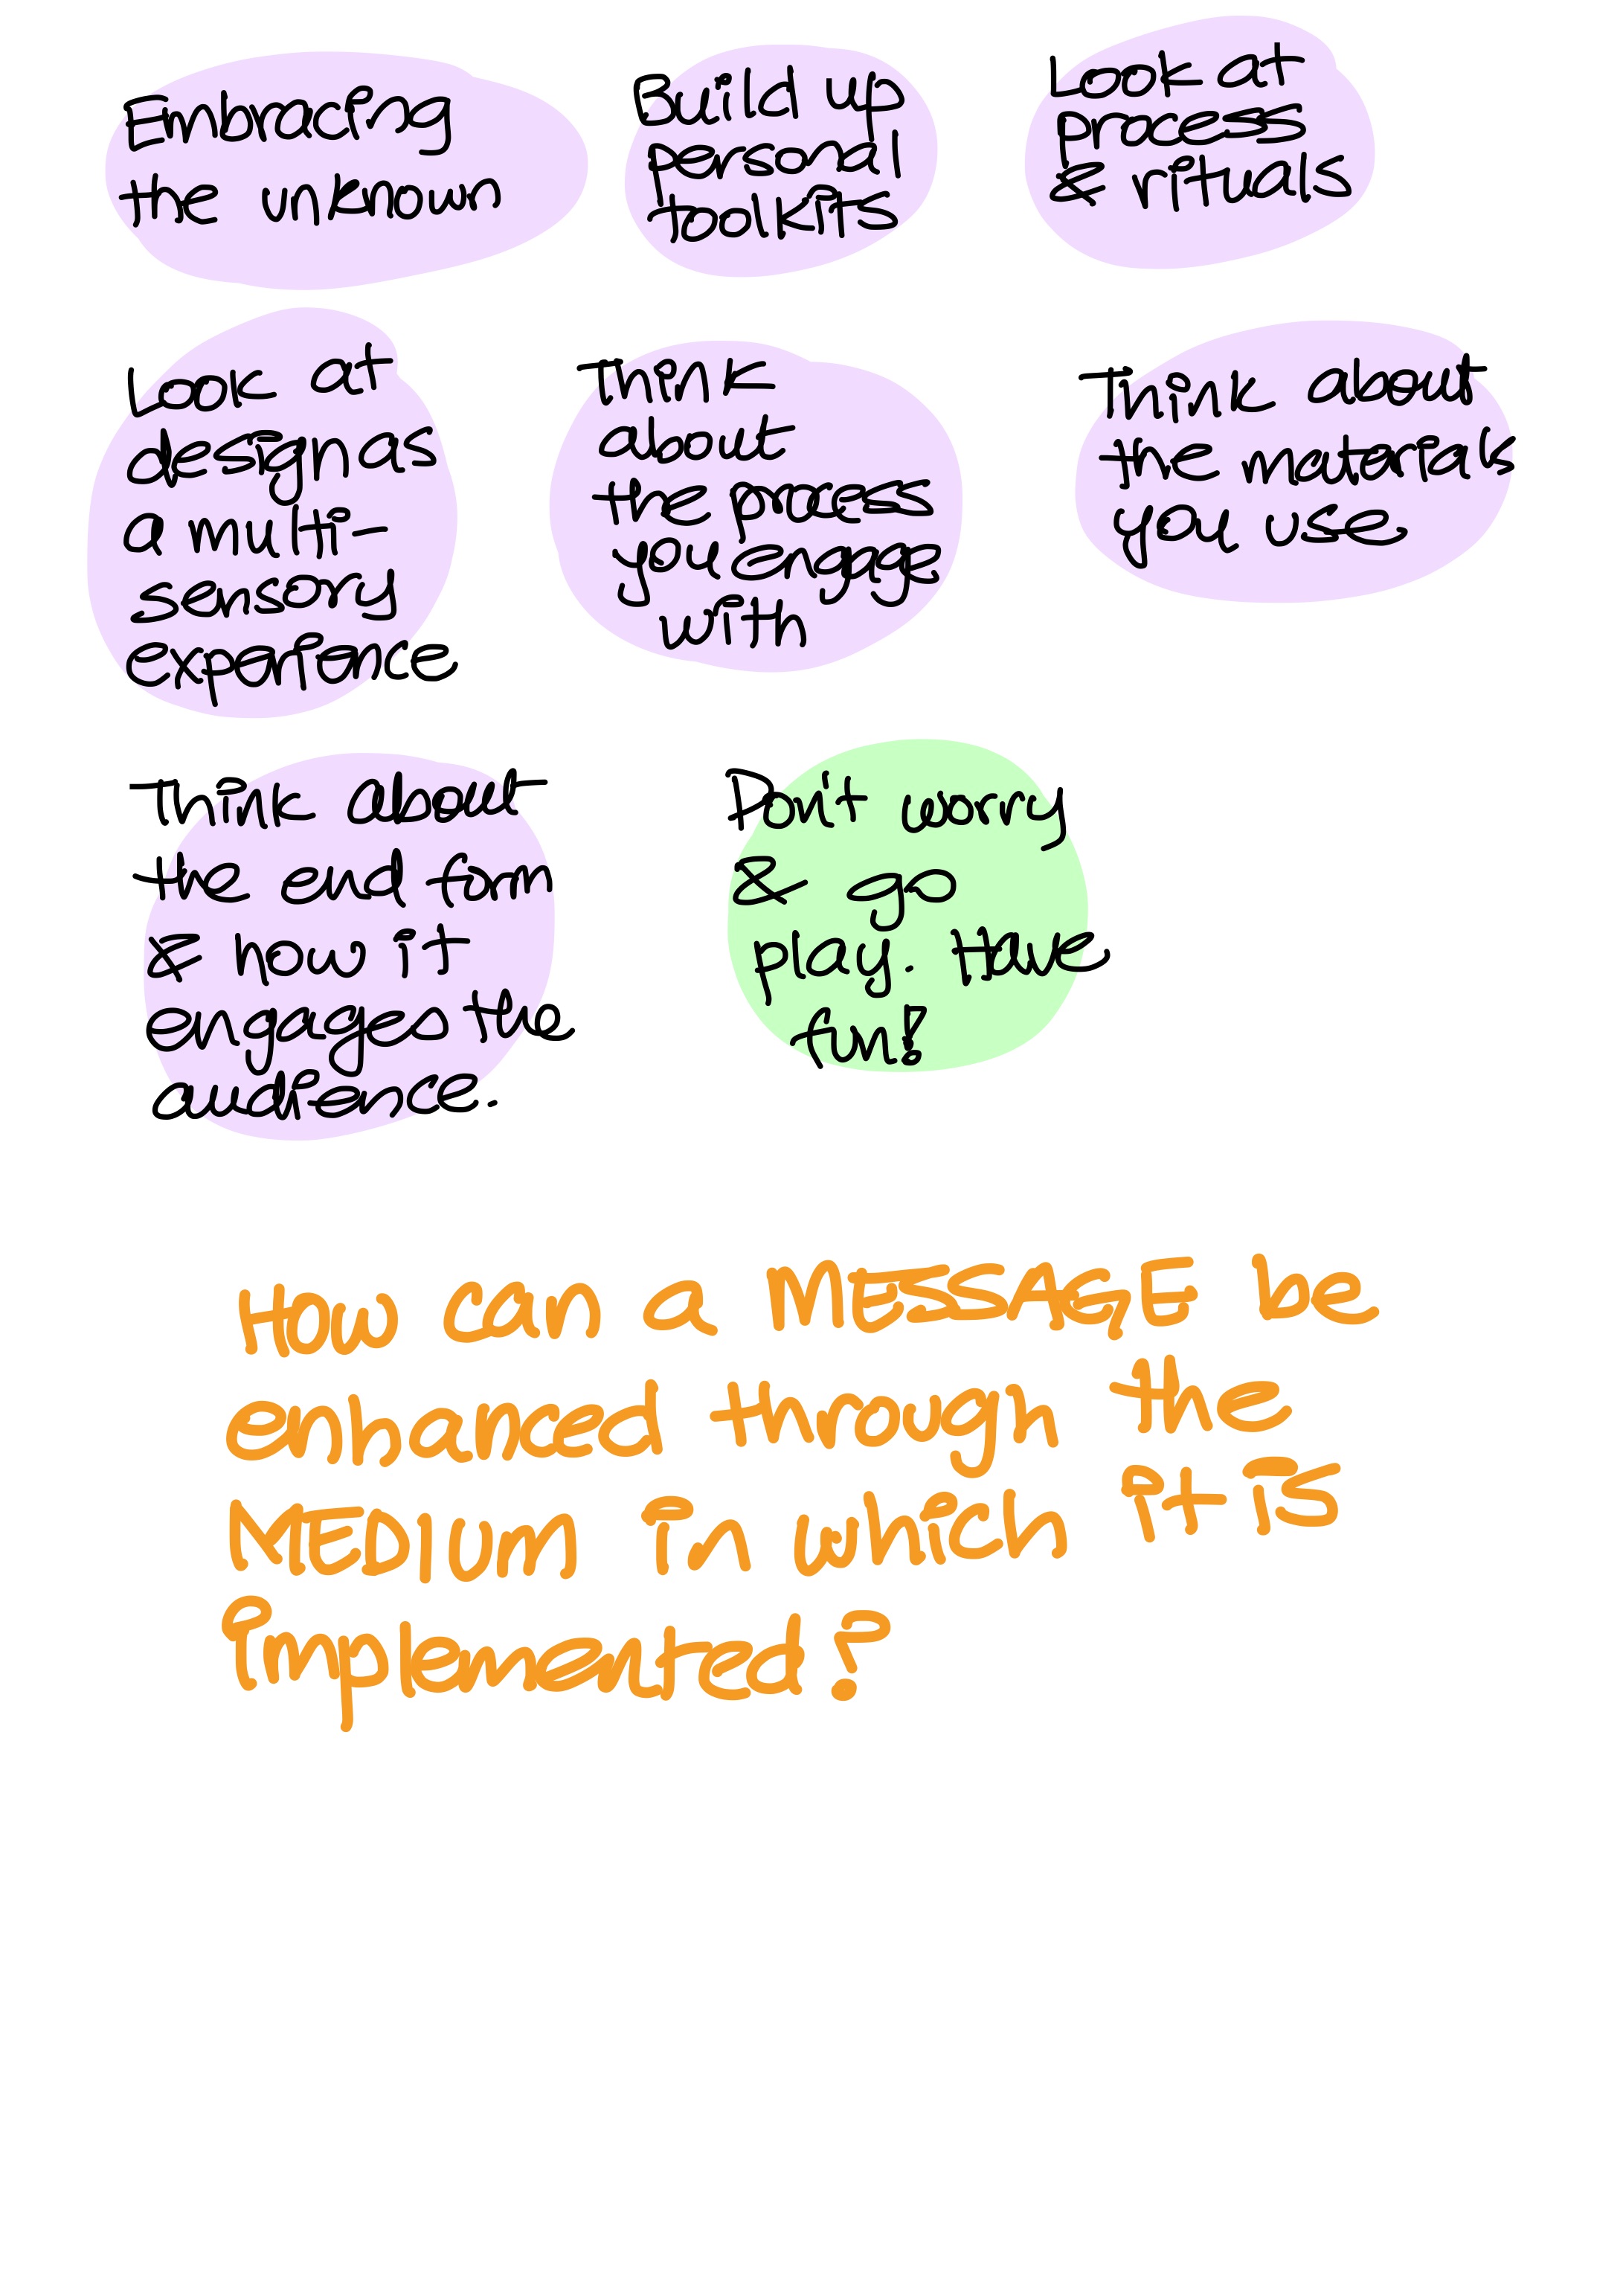 Embracing
the unknown
Build up
personal
toolkits
Look at
process
& rituals
Look at
design as
a multi-
sensory
experience
Think
about
the process
you engage
with
Think about
the materials
you use.
Think about
the end form
& how it
engages the
audience.
Don't worry
& go
play. Have
fun!
How can a MESSAGE be
enhanced through the
MEDIUM in which it is
implemented?